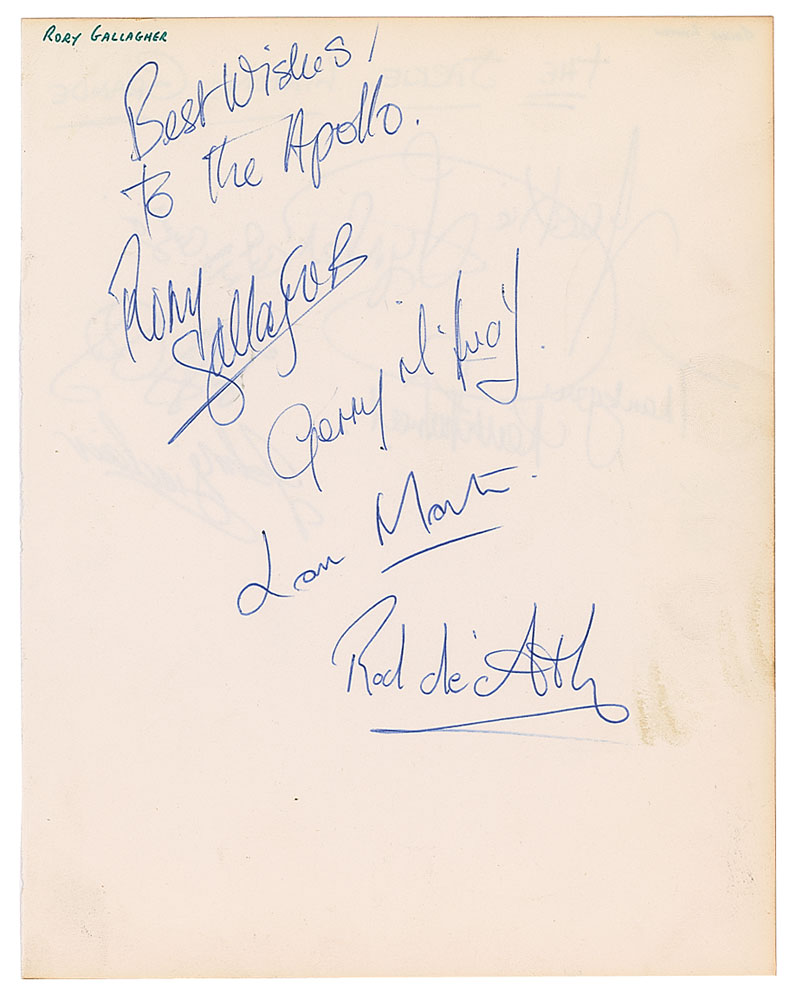 RORY GALLAGHER
Best Wishes,
to the Apollo.
Rory
Gallagher
Gerry
Lou Martin.
Rod de'Ath